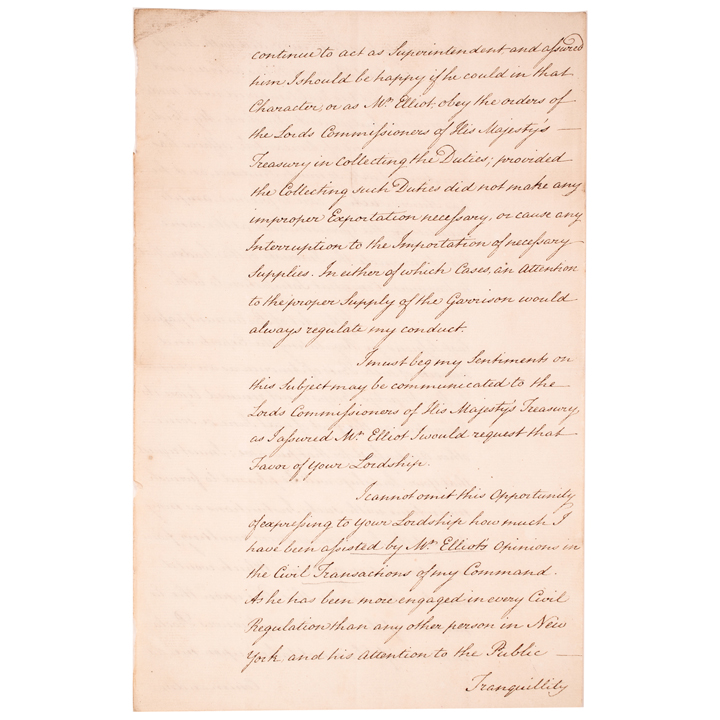 continue to act as Superintendent and assured
him I should be happy if he could in that
Character, or as Mr. Elliot, obey the orders of
the Lords Commissioners of His Majesty's —
Treasury in collecting the Duties; provided
the Collecting such Duties did not make any
improper Exportation necessary, or cause any
Interruption to the Importation of necessary
Supplies. In either of which Cases, an Attention
to the proper Supply of the Garrison would
always regulate my conduct.
I must beg my Sentiments on
this Subject may be communicated to the
Lords Commissioners of His Majesty's Treasury,
as I assured Mr. Elliot I would request that
Favor of Your Lordship.
I cannot omit this Opportunity
of expressing to Your Lordship how much I
have been assisted by Mr. Elliot's Opinions in
the Civil Transactions of my Command.
As he has been more engaged in every Civil
Regulation than any other person in New
York and his Attention to the Public —
Tranquillity